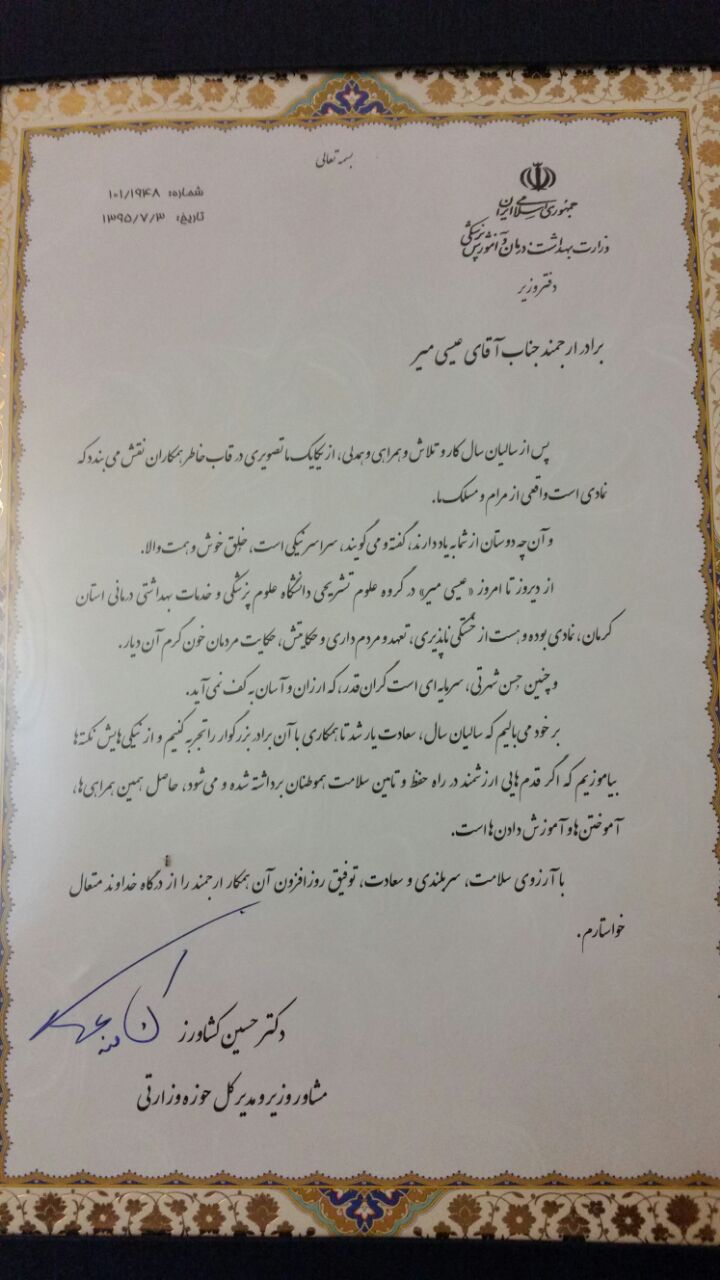 بسمه تعالی
جمهوری اسلامی ایران
وزارت بهداشت، درمان و آموزش پزشکی
دفتر وزیر
شماره: ۱۰۱/۱۹۴۸
تاریخ: ۱۳۹۵/۷/۳
برادر ارجمند جناب آقای عیسی میر
پس از سالیان سال کار و تلاش و همراهی و همدلی، از یکایک ما تصویری در قاب خاطر همکاران نقش می بندد که
نمادی است واقعی از مرام و مسلک ما.
و آن چه دوستان از شما به یاد دارند، گفته و می گویند، سراسر نیکی است، خلق خوش و همت والا.
از دیروز تا امروز «عیسی میر» در گروه علوم تشریحی دانشگاه علوم پزشکی و خدمات بهداشتی درمانی استان
کرمان، نمادی بوده و هست از خستگی ناپذیری، تعهد و مردم داری و حکایتش، حکایت مردمان خون گرم آن دیار.
و چنین حسن شهرتی، سرمایه ای است گران قدر، که ارزان و آسان به کف نمی آید.
بر خود می بالیم که سالیان سال، سعادت یار شد تا همکاری با آن برادر بزرگوار را تجربه کنیم و از نیکی هایش نکته ها
بیاموزیم که اگر قدم هایی ارزشمند در راه حفظ و تامین سلامت هموطنان برداشته شده و می شود، حاصل همین همراهی ها،
آموختن ها و آموزش دادن ها است.
با آرزوی سلامت، سربلندی و سعادت، توفیق روزافزون آن همکار ارجمند را از درگاه خداوند متعال
خواستارم.
دکتر حسین کشاورز
مشاور وزیر و مدیر کل حوزه وزارتی